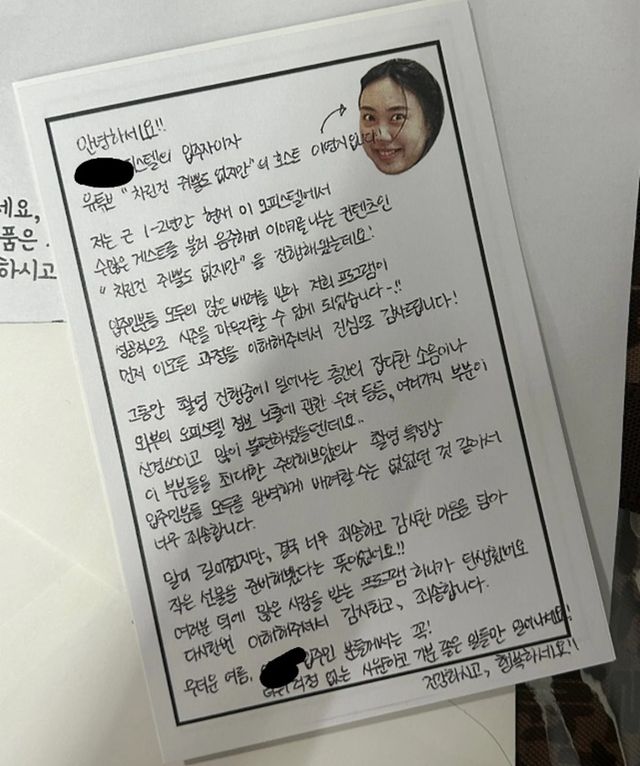 안녕하세요!!
스텔의 입주자이자
유튜브 "차린건 쥐뿔도 없지만"의 호스트 이영지입니다.
저는 근 1~2년간 현재 이 오피스텔에서
수많은 게스트를 불러 음주하며 이야기를 나누는 컨텐츠인
"차린건 쥐뿔도 없지만"을 진행해왔는데요!
입주인분들 모두의 많은 배려를 받아 저희 프로그램이
성공적으로 시즌을 마무리할 수 있게 되었습니다-!!
먼저 이 모든 과정을 이해해주셔서 진심으로 감사드립니다!
그동안 촬영 진행중에 일어나는 층간의 잡다한 소음이나
외부의 오피스텔 정보 노출에 관한 우려 등등, 여러가지 부분이
신경쓰이고 많이 불편하셨을텐데요..
이 부분들을 최대한 주의해보았으나 촬영 특성상
입주인분들 모두를 완벽하게 배려할 수는 없었던 것 같아서
너무 죄송합니다.
말이 길어졌지만, 결국 너무 죄송하고 감사한 마음을 담아
작은 선물을 준비해봤다는 뜻이었어요!!
여러분 덕에 많은 사랑을 받는 프로그램 하나가 탄생했네요
다시한번 이해해주셔서 감사하고, 죄송합니다.
무더운 여름, 입주인 분들께서는 꼭!
걱정 없는 시원하고 기분 좋은 일들만 일어나세요!
건강하시고, 행복하세요!!
세요,
품은
하시고